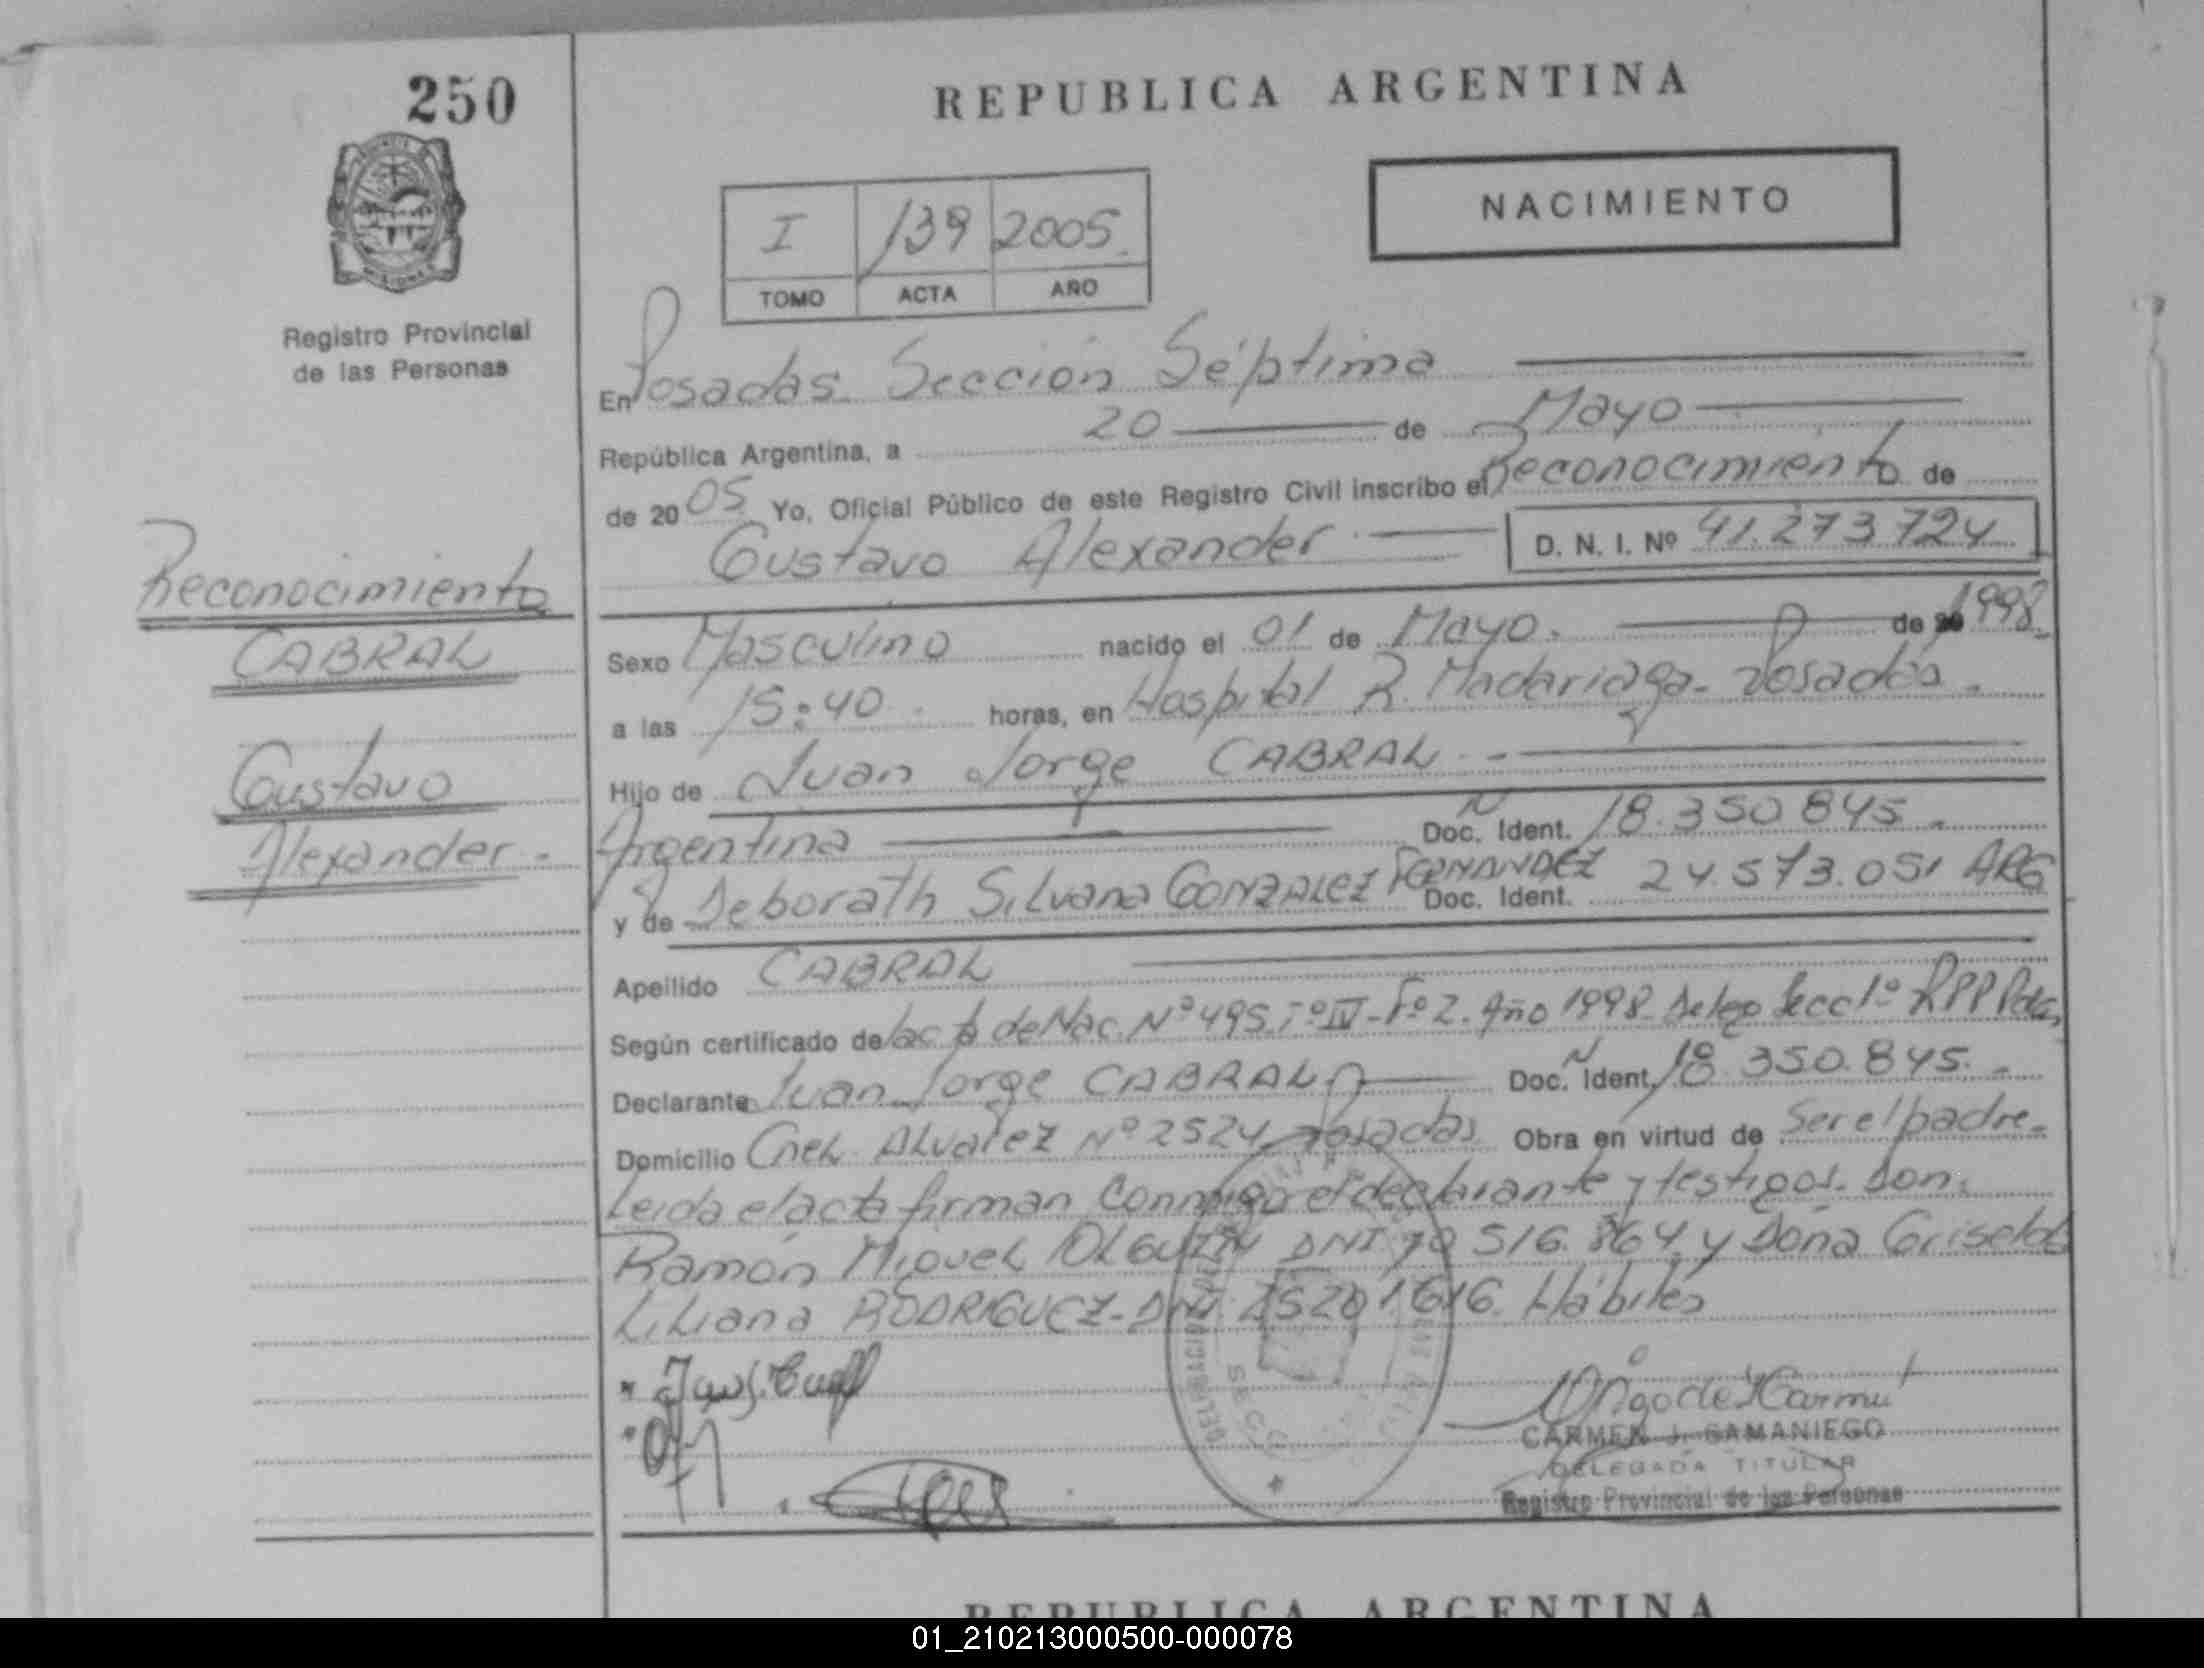 250
REPUBLICA ARGENTINA
NACIMIENTO
I 139 2005
TOMO ACTA AÑO
Registro Provincial
de las Personas
En Posadas Sección Séptima
República Argentina, a 20 de Mayo
de 2005 Yo, Oficial Público de este Registro Civil inscribo el Reconocimiento de
Gustavo Alexander D. N. I. Nº 41.273.724
Reconocimiento
CABRAL
Gustavo
Alexander
Sexo Masculino nacido el 01 de Mayo. de 1998
a las 15:40 horas, en Hospital R. Madariaga - Posadas.
Hijo de Juan Jorge CABRAL
Argentina Doc. Ident. 18.350.845
y de Deborath Silvana GONZALEZ FERNANDEZ Doc. Ident. 24.573.051 ARG
Apellido CABRAL
Según certificado de acta de Nac. Nº 495 Tº IV - Fº 2. Año 1998 Secc 1º RPP
Declarante Juan Jorge CABRAL Doc. Ident. 18.350.845.
Domicilio Cnel. ALvarez Nº 2524 Posadas Obra en virtud de Ser el padre
Leida el acta firman conmigo el declarante y testigos. Don
Ramón Miguel OLGUIN DNI 516.864 y Doña Griselda
Liliana RODRIGUEZ - DNI Hábiles
CARMEN J. SAMANIEGO
DELEGADA TITULAR
Registro Provincial de las Personas
REPUBLICA ARGENTINA
01_210213000500-000078